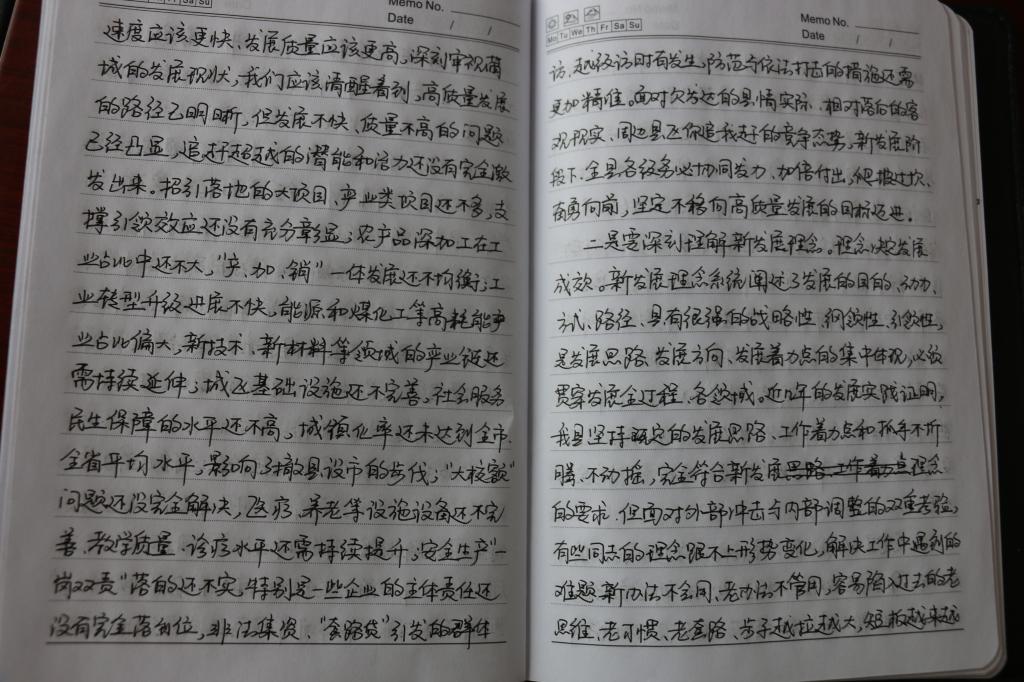 Fr Sa Su
Memo No.
Date / /
速度应该更快、发展质量应该更高,深刻审视蒲
城的发展现状,我们应该清醒看到,高质量发展
的路径已明晰,但发展不快、质量不高的问题
已经凸显,追赶超越的潜能和活力还没有完全激
发出来。招引落地的大项目、产业类项目还不多,支
撑引领效应还没有充分彰显;农产品深加工在工
业占比中还不大,“产、加、销”一体发展还不均衡;工
业转型升级进展不快,能源和煤化工等高耗能产
业占比偏大,新技术、新材料等领域的产业链还
需持续延伸;城区基础设施还不完善,社会服务
民生保障的水平还不高,城镇化率还未达到全市、
全省平均水平,影响了撤县设市的步伐;“大校额”
问题还没完全解决,医疗、养老等设施设备还不完
善、教学质量、诊疗水平还需持续提升;安全生产“一
岗双责”落的还不实,特别是一些企业的主体责任还
没有完全落到位,非法集资、“套路贷”引发的群体
Mo Tu We Th Fr Sa Su
Memo No.
Date / /
访、越级访时有发生,防范与依法打击的措施还需
更加精准。面对欠发达的县情实际、相对落后的客
观现实、周边县区你追我赶的竞争态势,新发展阶
段下,全县各级务必协同发力、加倍付出,爬坡过坎、
奋勇向前,坚定不移向高质量发展的目标迈进。
二是要深刻理解新发展理念。理念决定发展
成效。新发展理念系统阐述了发展的目的、动力、
方式、路径,具有很强的战略性、纲领性、引领性,
是发展思路、发展方向、发展着力点的集中体现,必须
贯穿发展全过程、各领域。近几年的发展实践证明,
我县坚持既定的发展思路、工作着力点和抓手不折
腾、不动摇,完全符合新发展思路、工作着力点理念
的要求。但面对外部冲击与内部调整的双重考验,
有些同志的理念跟不上形势变化,解决工作中遇到的
难题新办法不会用、老办法不管用,容易陷入过去的老
思维、老习惯、老套路、步子越拉越大,短板越来越